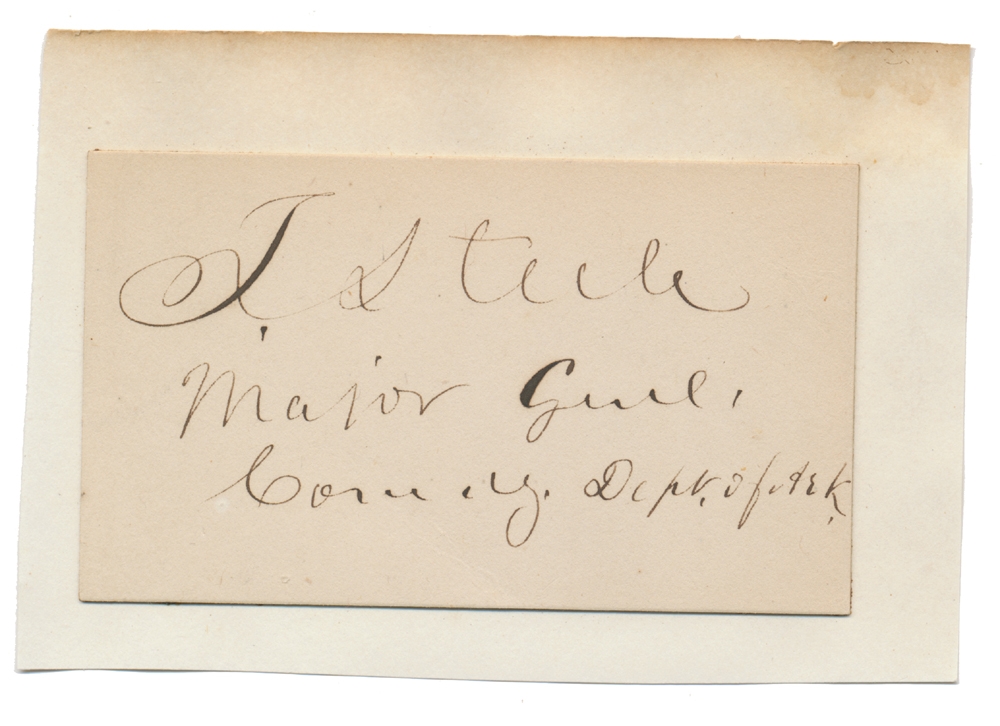 F. Steele
Major Genl.
Comdg. Dept. of Ark.